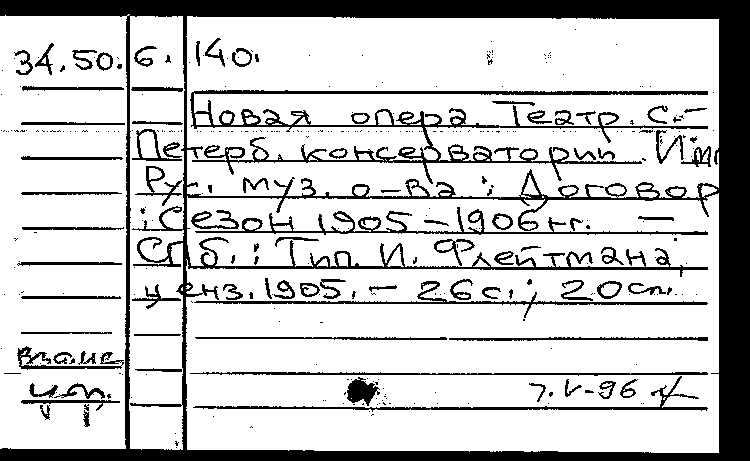 34.50.6.140.
Новая опера. Театр. С.-
Петерб. консерватории. Имп
Рус. муз. о-ва ; Договор
; Сезон 1905-1906 гг. —
СПб. : Тип. И. Флейтмана,
ценз. 1905. - 26 с. ; 20 см.
7.V-96